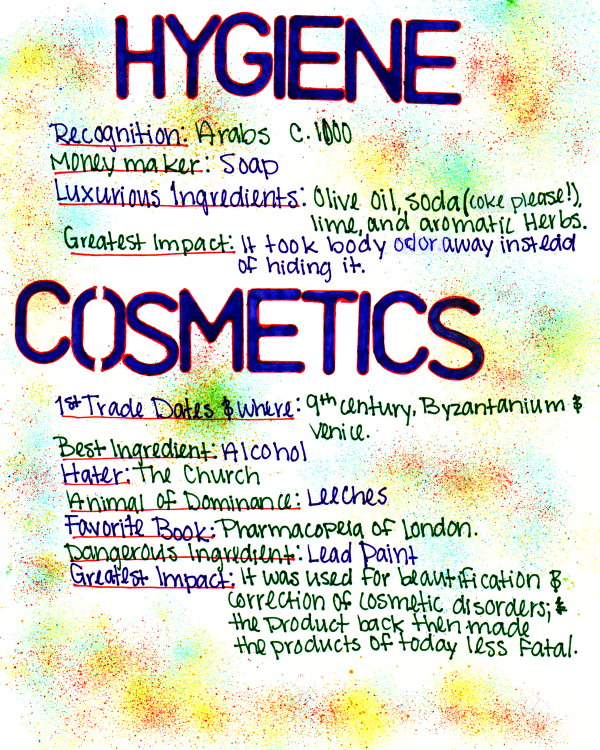 HYGIENE
Recognition: Arabs c. 1000
Money maker: Soap
Luxurious Ingredients: Olive oil, soda (coke please!),
lime, and aromatic Herbs.
Greatest Impact: It took body odor away instead
of hiding it.
COSMETICS
1st Trade Dates & where: 9th century. Byzantanium &
Venice.
Best Ingredient: Alcohol
Hater: The Church
Animal of Dominance: Leeches
Favorite Book: Pharmacopeia of London.
Dangerous Ingredient: Lead Paint
Greatest Impact: It was used for beautification &
correction of cosmetic disorders; &
the product back then made
the products of today less fatal.